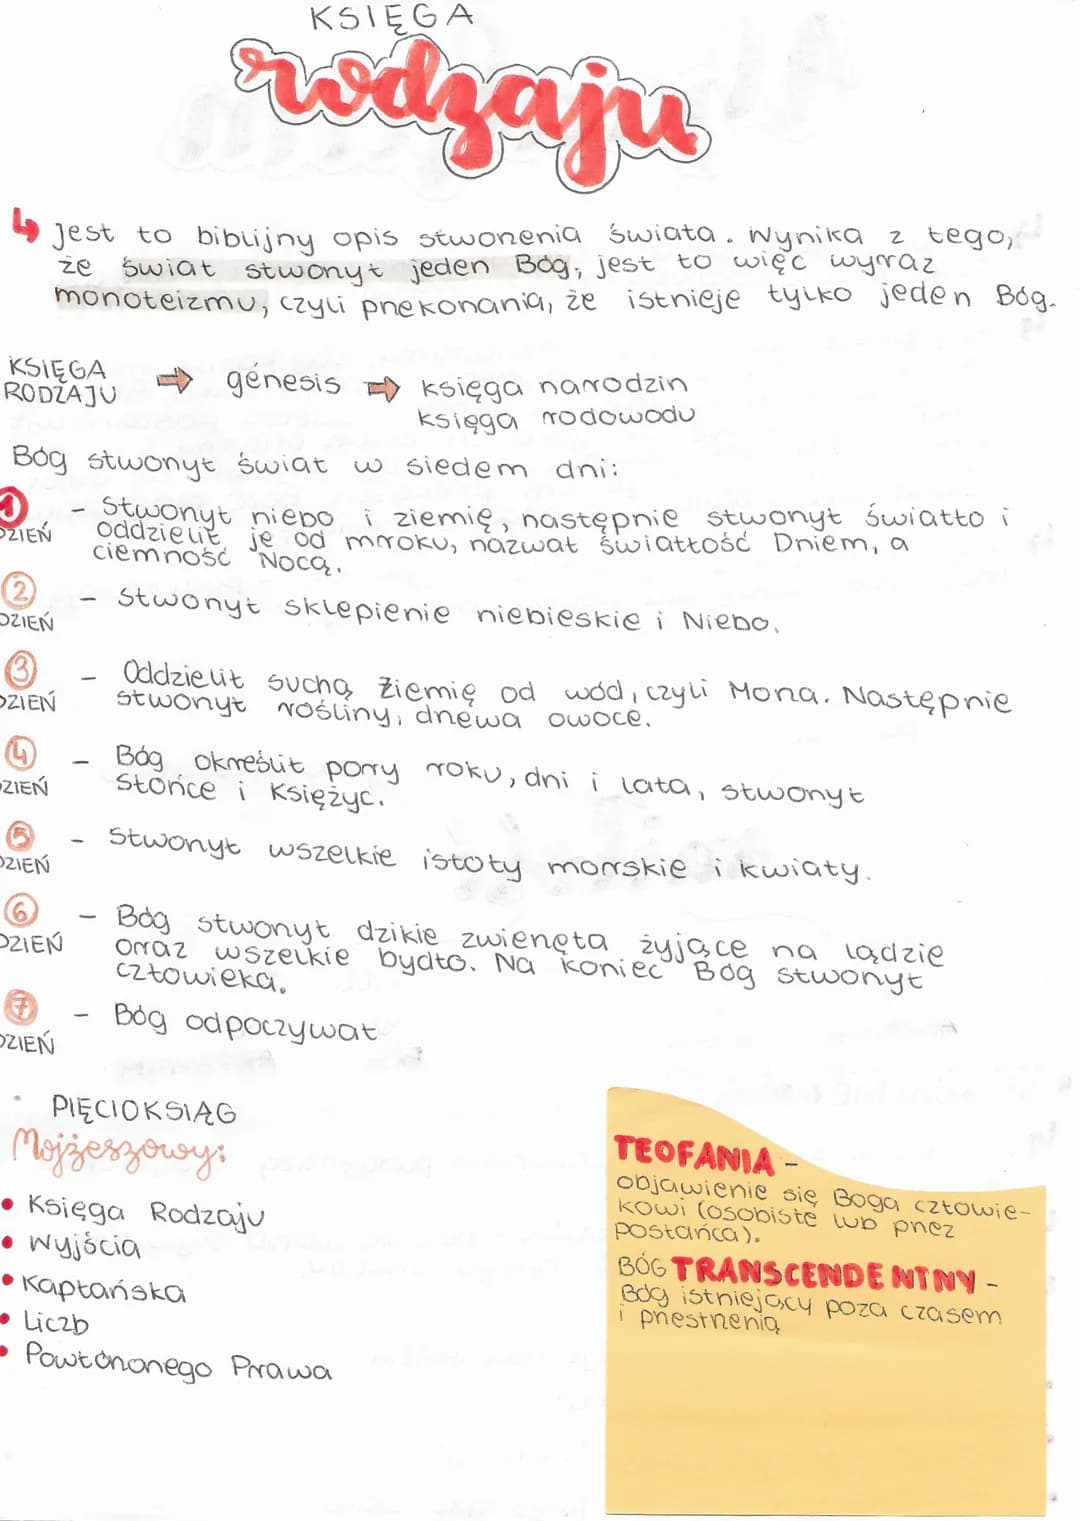 KSIĘGA
rodzaju
↳ Jest to biblijny opis stworzenia świata. Wynika z tego,
że świat stworzył jeden Bóg, jest to więc wyraz
monoteizmu, czyli przekonania, że istnieje tylko jeden Bóg.
KSIĘGA RODZAJU → génesis → księga narodzin
księga rodowodu
Bóg stworzył świat w siedem dni:
1 DZIEŃ - Stworzył niebo i ziemię, następnie stworzył światło i
oddzielił je od mroku, nazwał światłość Dniem, a
ciemność Nocą.
2 DZIEŃ - Stworzył sklepienie niebieskie i Niebo.
3 DZIEŃ - Oddzielił suchą ziemię od wód, czyli Morza. Następnie
stworzył rośliny, drzewa owoce.
4 DZIEŃ - Bóg określił pory roku, dni i lata, stworzył
Słońce i Księżyc.
5 DZIEŃ - Stworzył wszelkie istoty morskie i kwiaty.
6 DZIEŃ - Bóg stworzył dzikie zwierzęta żyjące na lądzie
oraz wszelkie bydło. Na koniec Bóg stworzył
człowieka.
7 DZIEŃ - Bóg odpoczywał
• PIĘCIOKSIĄG
Mojżeszowy:
• Księga Rodzaju
• Wyjścia
• Kapłańska
• Liczb
• Powtórzonego Prawa
TEOFANIA -
objawienie się Boga człowie-
kowi (osobiste lub przez
posłańca).
BÓG TRANSCENDENTNY -
Bóg istniejący poza czasem
i przestrzenią